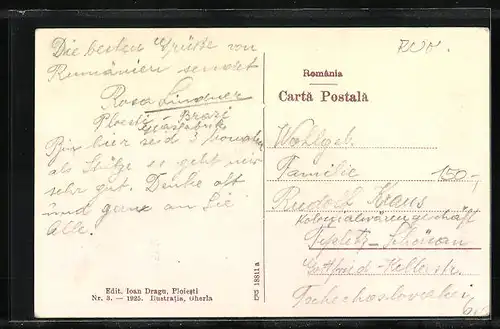 Die besten Grüße von
Rumänien sendet
Rosa Lindner
Ploesti - Brazi
Glasfabrik
Bin hier seid 3 Monaten
als Stütze es geht mir
sehr gut. Denke oft
und ganz an Sie
Alle.
Edit. Ioan Dragu, Ploiești
Nr. 3. — 1925. Ilustrația, Gherla
18811 a
România
Cartă Postală
Wohlgeb.
Familie
150.-
Rudolf Kraus
Kolonialwarengeschäft
Teplitz - Schönau
Gottfried - Kellerstr.
Tschechoslovakei